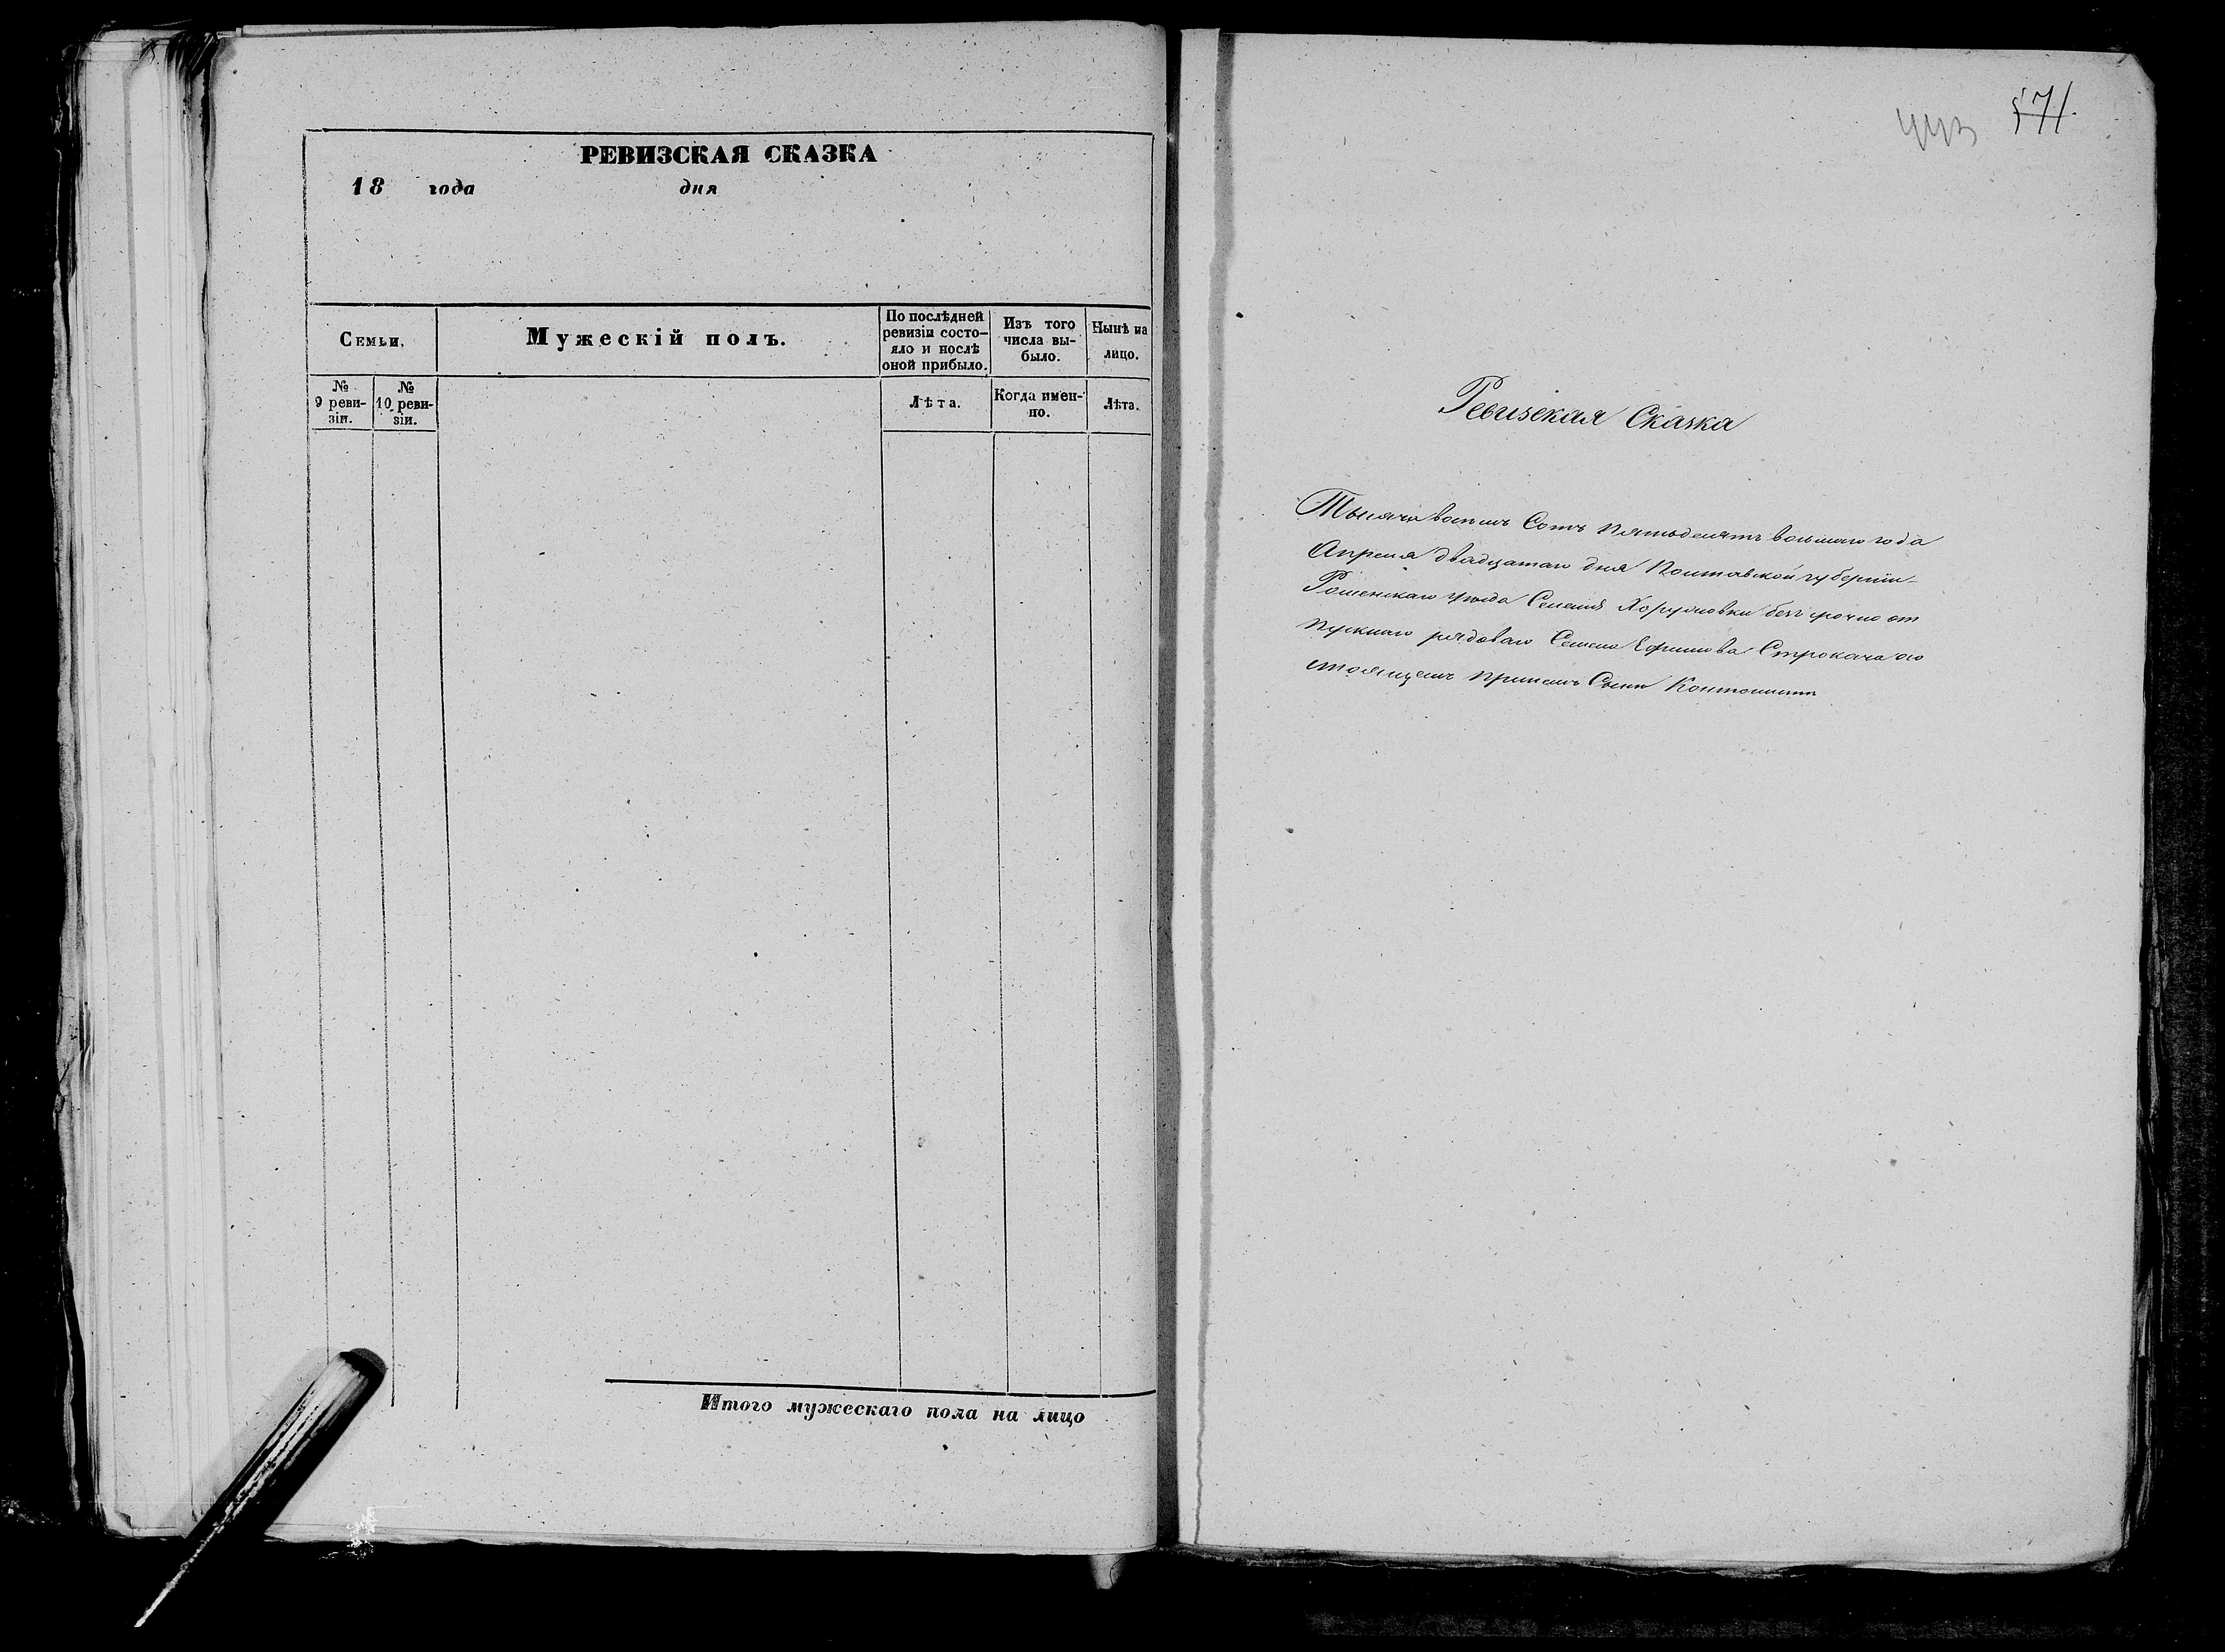 РЕВИЗСКАЯ СКАЗКА
18 года дня
Семьи.
Мужескій полъ.
По послѣдней ревизіи состо-
яло и послѣ
оной прибыло.
Изъ того
числа вы-
было.
Нынѣ на
лицо.
№
9 реви-
зіи.
№
10 реви-
зіи.
Лѣта.
Когда имен-
но.
Лѣта.
Итого мужескаго пола на лицо
443 571
Ревизская Сказка
Тысяча восемь Сотъ пятьдесятъ восьмаго года
Апреля двадцатаго дня Полтавской губерніи
Роменскаго уѣзда Селенія Хоружовки безсрочно от
пускнаго рядоваго Семена Ефимова Строкача о со
стоящемъ при немъ Сыне